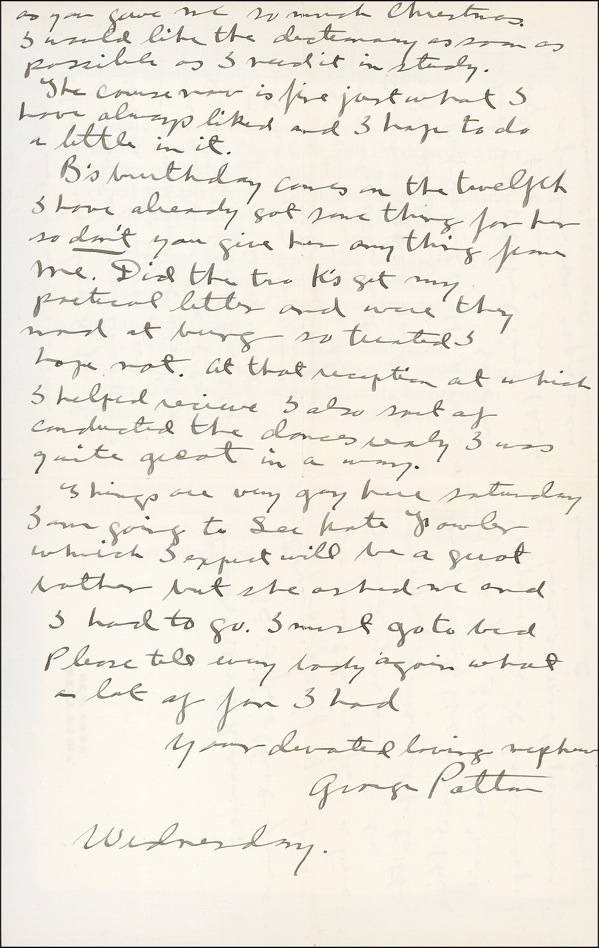 as you gave me so much Christmas.
I would like the dictionary as soon as
possible as I need it in study.
The course now is fine just what I
have always liked and I hope to do
a little in it.
B's birthday comes on the twelfth
I have already got some thing for her
so don't you give her any thing from
me. Did the two K's get my
poetical letter and were they
mad at being so treated I
hope not. At that reception at which
I helped recieve I also sort of
conducted the dances realy I was
quite great in a way.
Things are very gay here saturday
I am going to See Kate Fowler
which I expect will be a great
bother but she asked me and
I had to go. I must go to bed
Please tell every body again what
a lot of fun I had
Your devoted loving nephew
George Patton
Wednesday.